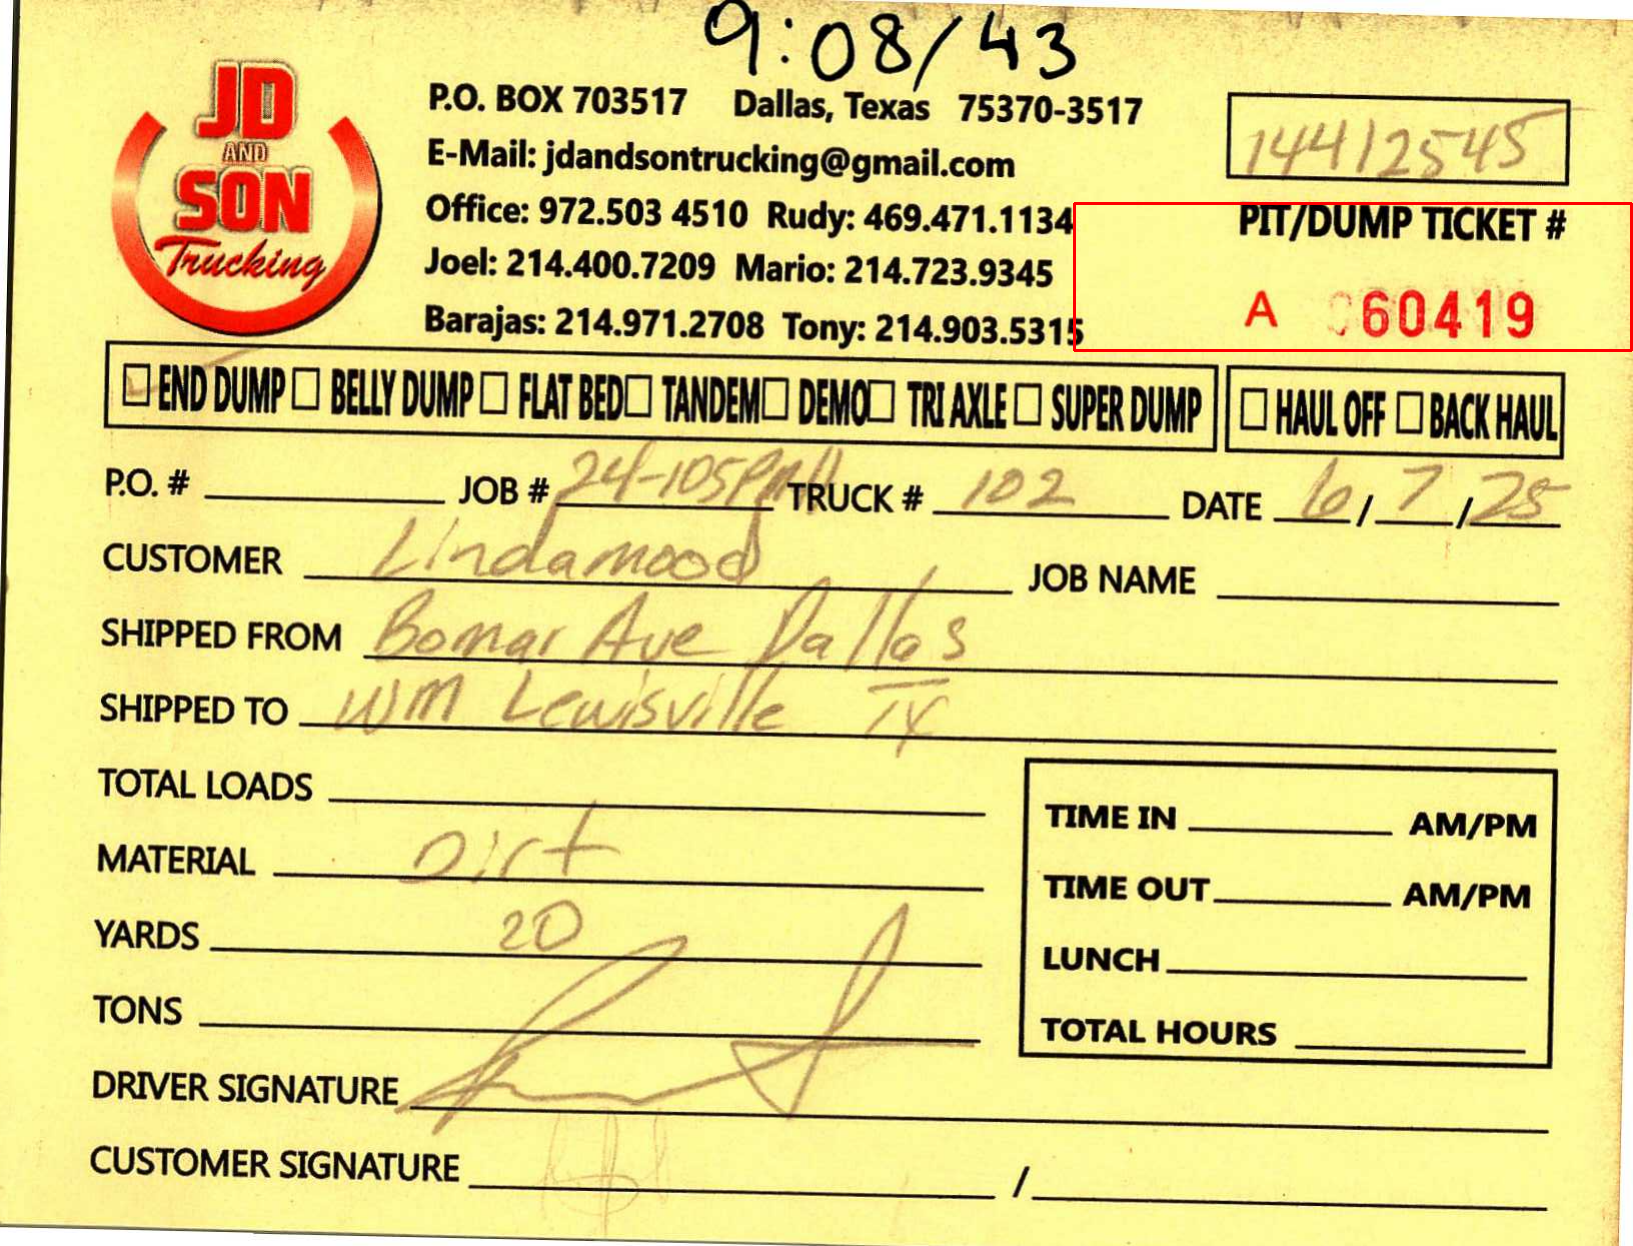 9:08/43
JD
AND
SON
Trucking
P.O. BOX 703517 Dallas, Texas 75370-3517
E-Mail: jdandsontrucking@gmail.com
Office: 972.503 4510 Rudy: 469.471.1134
Joel: 214.400.7209 Mario: 214.723.9345
Barajas: 214.971.2708 Tony: 214.903.5315
14412545
PIT/DUMP TICKET #
A 060419
END DUMP BELLY DUMP FLAT BED TANDEM DEMO TRI AXLE SUPER DUMP HAUL OFF BACK HAUL
P.O. # JOB # 24-105 TRUCK # 102 DATE 6/7/25
CUSTOMER Lindamood JOB NAME
SHIPPED FROM Bomar Ave Dallas
SHIPPED TO WM Lewisville TX
TOTAL LOADS
MATERIAL Dirt
YARDS 20
TONS
DRIVER SIGNATURE
CUSTOMER SIGNATURE /
TIME IN AM/PM
TIME OUT AM/PM
LUNCH
TOTAL HOURS